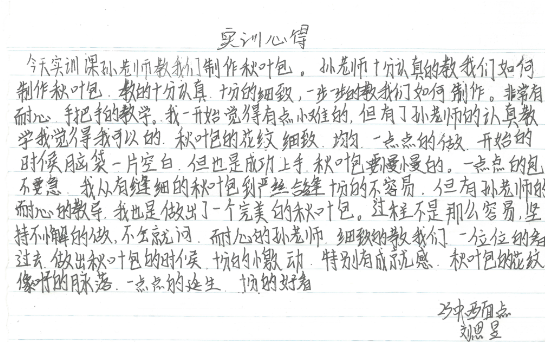 实训心得
今天实训课孙老师教我们制作秋叶包。孙老师十分认真的教我们如何
制作秋叶包，教的十分认真，十分的细致，一步一步的教我们如何制作。非常有
耐心，手把手的教学。我一开始觉得有点小难的，但有了孙老师的认真教
学我觉得我可以的，秋叶包的花纹细致，均匀，一点点的做，开始的
时候脑袋一片空白，但也是成功上手，秋叶包要慢慢的。一点点的包
不要急，我从有缝细的秋叶包到严丝合缝十分的不容易，但有孙老师的
耐心的教导，我也是做出了一个完美的秋叶包。过程不是那么容易，坚
持不懈的做，不会就问，耐心的孙老师，细致的教我们，一位位的看
过去，做出秋叶包的时候，十分的激动，特别有成就感，秋叶包的花纹
像叶的脉落，一点点的延生，十分的好看
中西面点
刘思